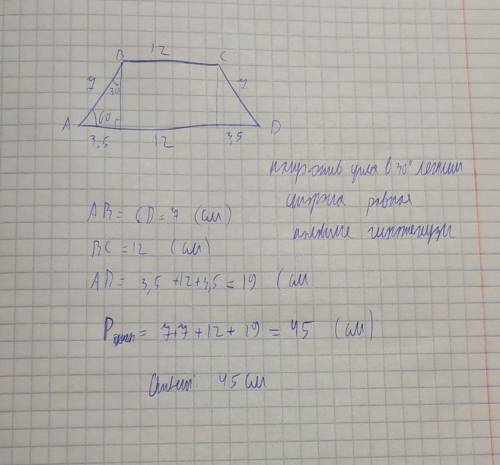 12
B C
7 30° 7
A 60° D
3,5 12 3,5
напротив угла в 30° лежит
сторона равная
половине гипотенузы
AB = CD = 7 (см)
BC = 12 (см)
AD = 3,5 + 12 + 3,5 = 19 (см
P = 7+7+12+19 = 45 (см)
Ответ: 45 см